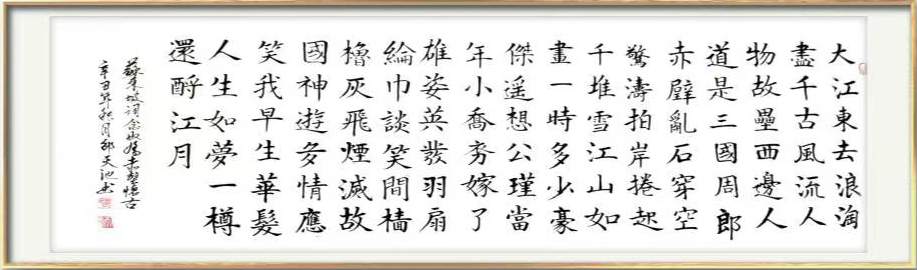 大江東去浪淘
盡千古風流人
物故壘西邊人
道是三國周郎
赤壁亂石穿空
驚濤拍岸捲起
千堆雪江山如
畫一時多少豪
傑遥想公瑾當
年小喬初嫁了
雄姿英發羽扇
綸巾談笑間檣
櫓灰飛煙滅故
國神遊多情應
笑我早生華髮
人生如夢一樽
還酹江月
蘇東坡詞念奴嬌赤壁懷古
辛丑年秋月天池书